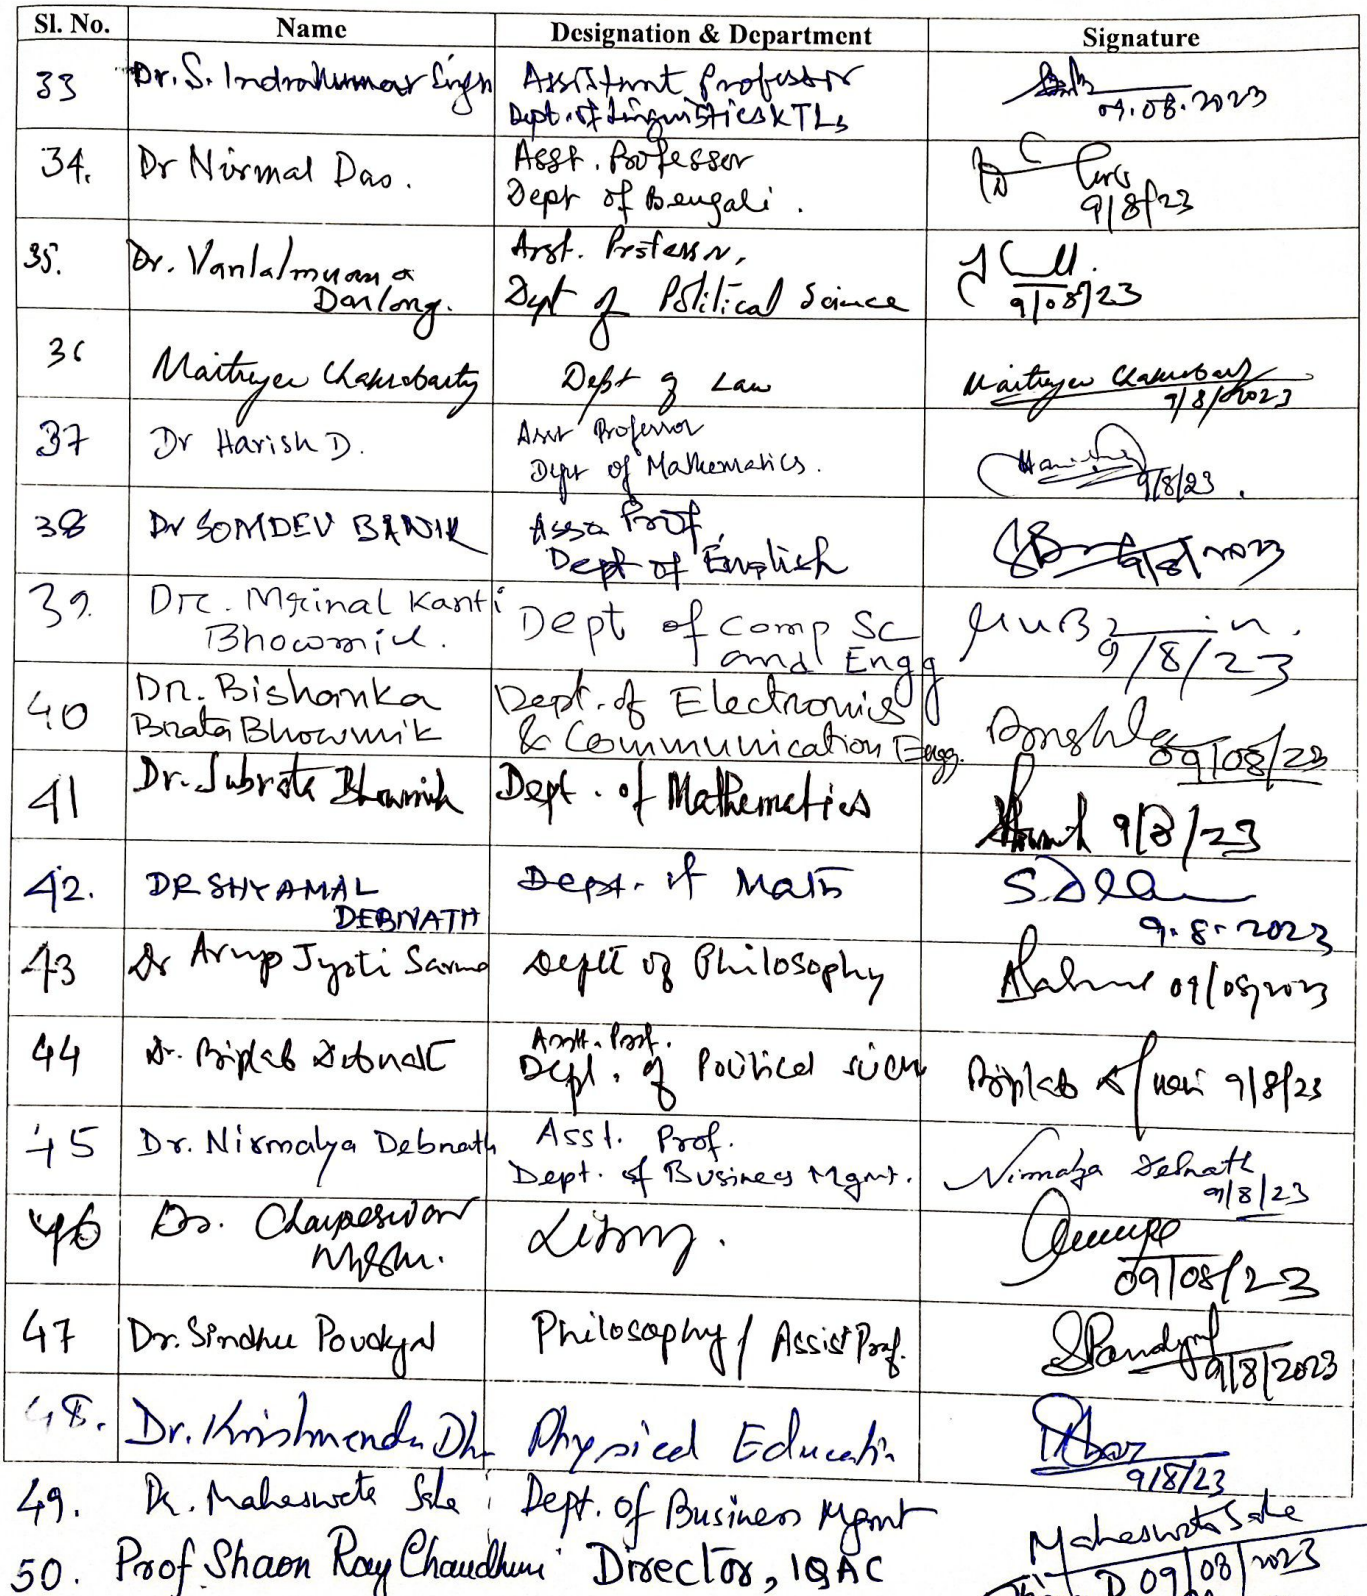 Sl. No. Name Designation & Department Signature
33 Dr. S. Indrakumar Singh Assistant Professor
Dept. of Linguistics & TLs 09.08.2023
34. Dr Nirmal Das. Asst. Professor
Dept of Bengali. 9/8/23
35. Dr. Vanlalmuana Asst. Professor,
Darlong. Dept of Political Science 9/08/23
36 Maitreyee Chakraborty Dept of Law Maitreyee Chakraborty
9/8/2023
37 Dr Harish D. Asst Professor
Dept of Mathematics. 9/8/23.
38 Dr SOMDEV BANIK Asso Prof,
Dept of English 9/8/2023
39. Dr. Mrinal Kanti Dept of Comp Sc
Bhowmik. and Engg 9/8/23
40 Dr. Bishanka Dept. of Electronics
Brata Bhowmik & Communication Engg. 09/08/23
41 Dr. Subrata Bhowmik Dept. of Mathematics 9/8/23
42. DR SHYAMAL Dept. of Math
DEBNATH 9.8.2023
43 Dr Arup Jyoti Sarma Deptt of Philosophy 09/08/2023
44 Dr. Biplab Debnath Asstt. Prof.
Dept. of Political Biplab 9/8/23
45 Dr. Nirmalya Debnath Asst. Prof.
Dept. of Business Mgmt. Nirmalya Debnath
9/8/23
46 Dr.
Library. 09/08/23
47 Dr. Sindhu Poudyal Philosophy / Assist Prof. 9/8/2023
48. Dr. Krishnendu Dhar Physical Education
9/8/23
49. Dr. Maheswata Saha Dept. of Business Mgmt Maheswata Saha
50. Prof Shaon Ray Chaudhuri Director, IQAC 09/08/2023